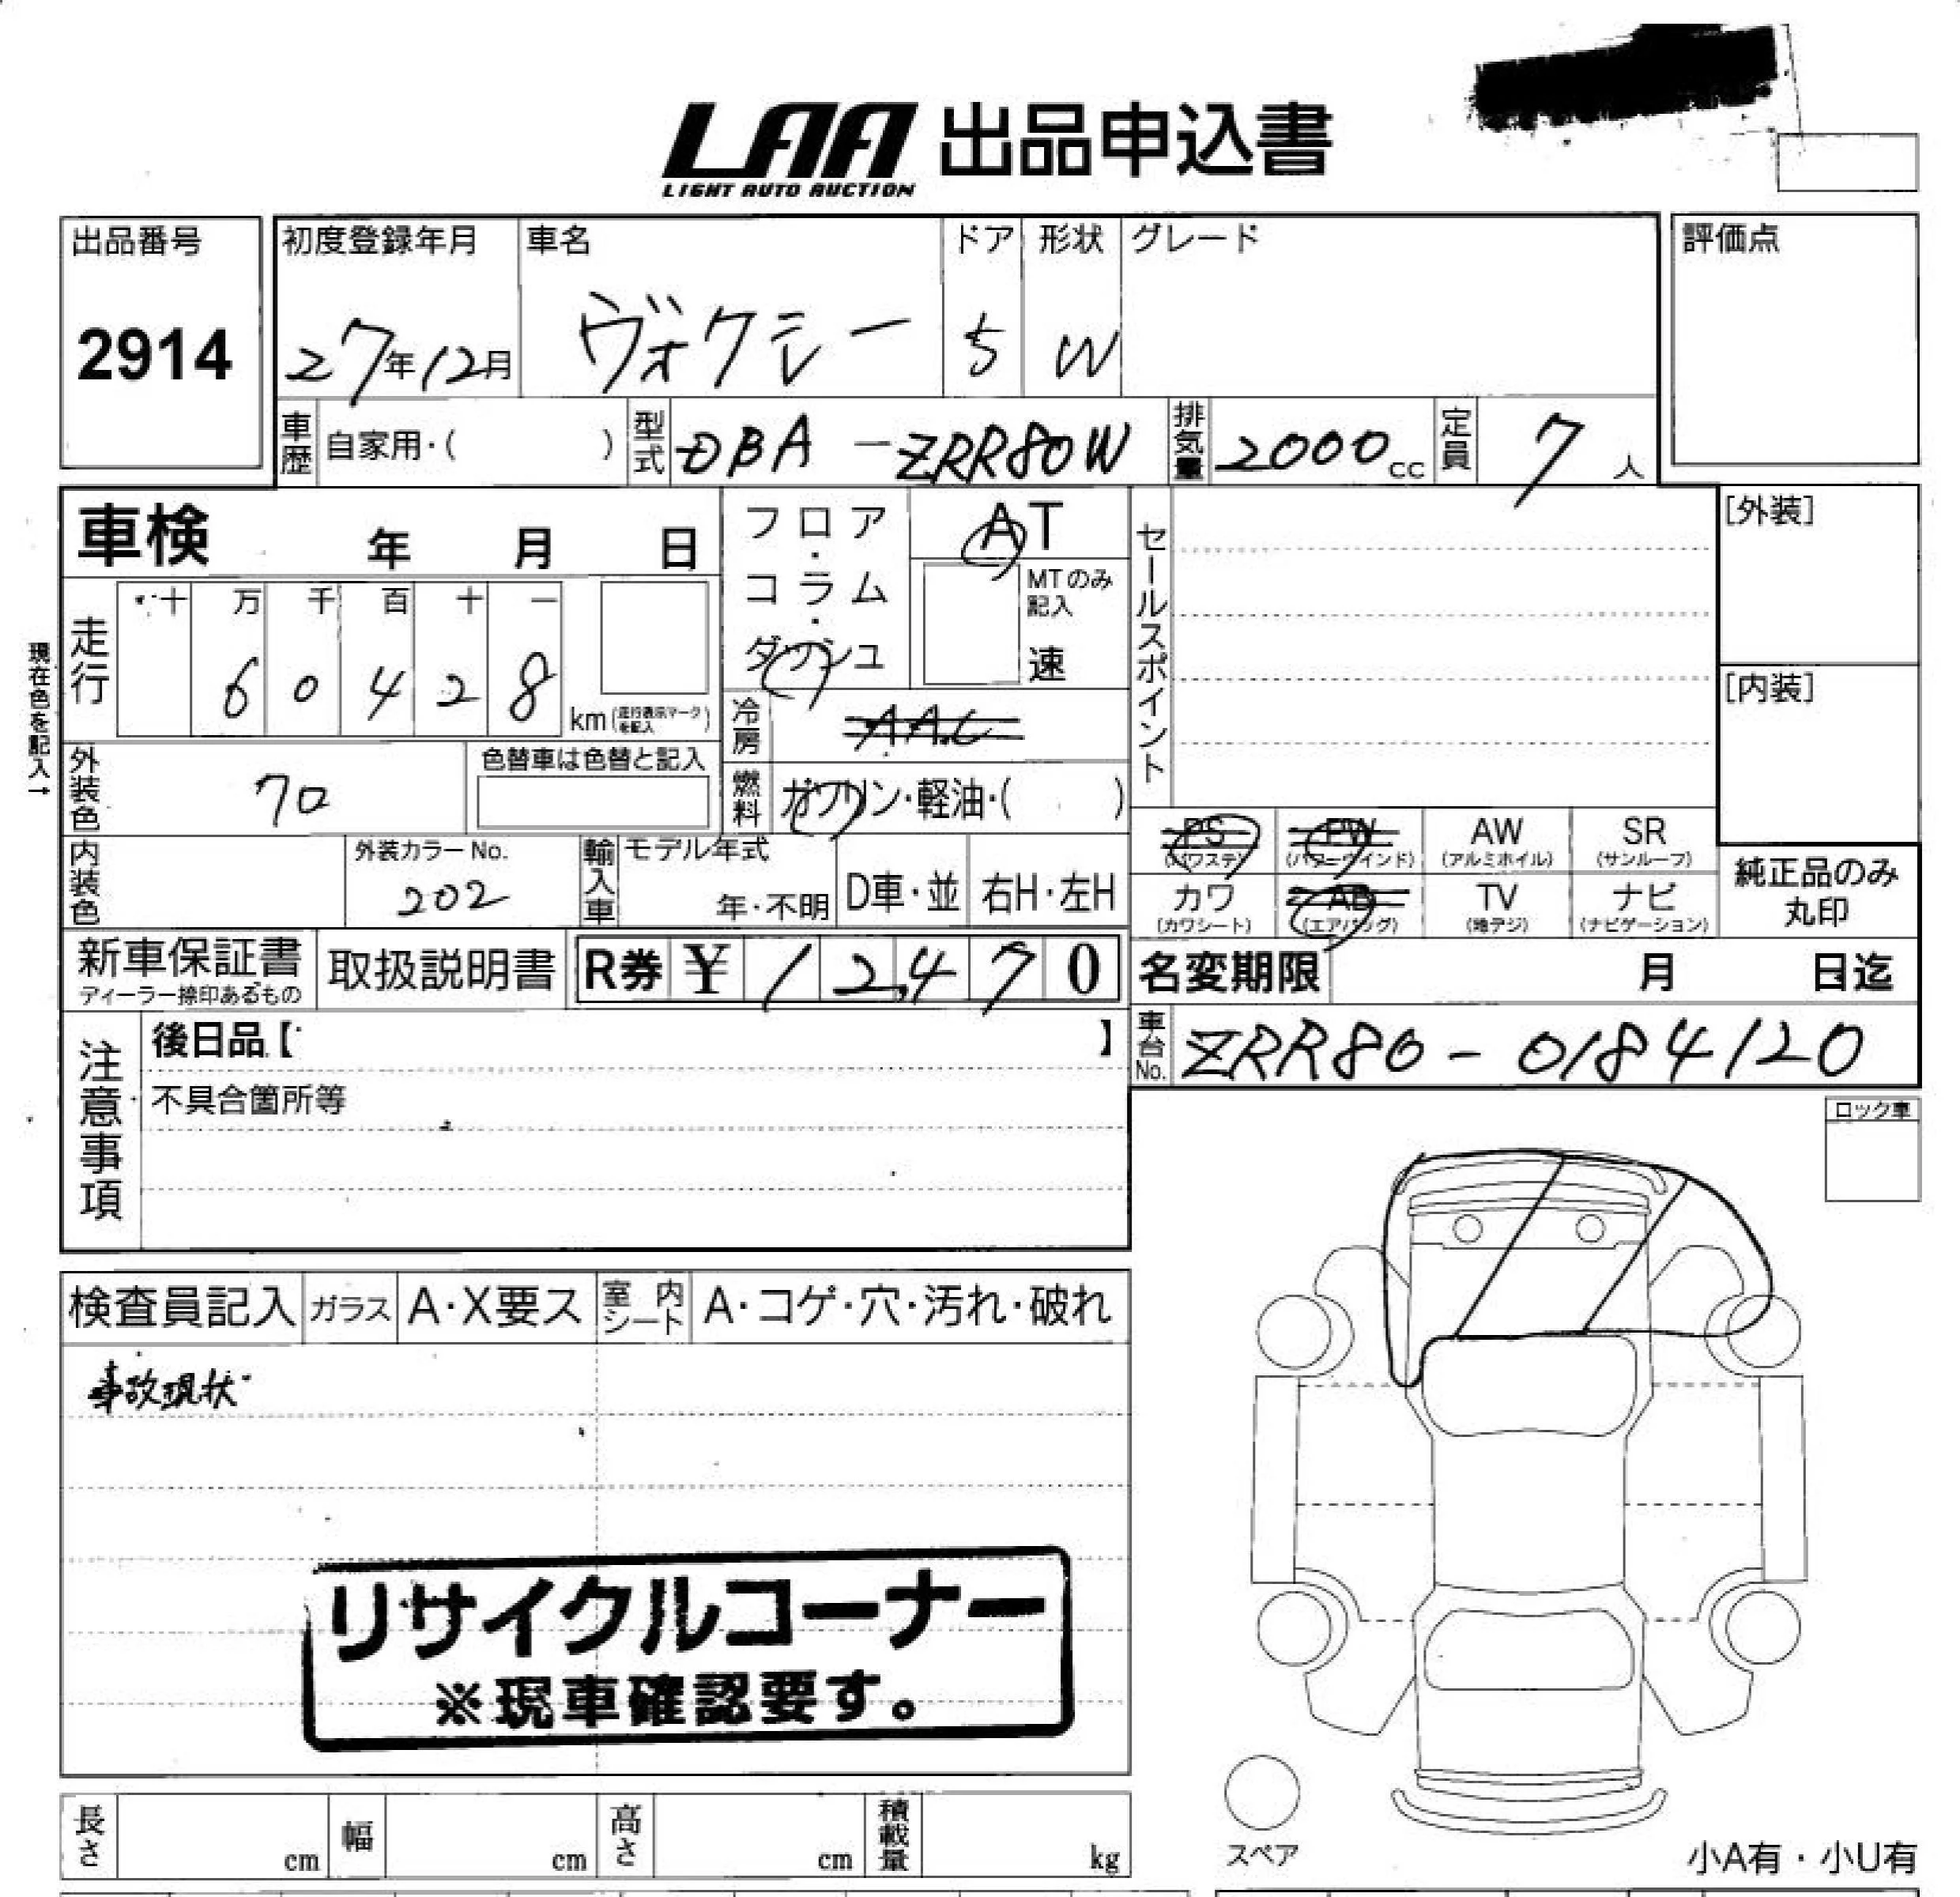 LAA 出品申込書
LIGHT AUTO AUCTION
出品番号
2914
初度登録年月
27年12月
車名
ヴォクシー
ドア
5
形状
W
グレード
評価点
車歴
自家用・( )
型式
DBA-ZRR80W
排気量
2000cc
定員
7人
車検 年 月 日
フロア・コラム・ダッシュ
AT
MTのみ記入
速
セールスポイント
[外装]
[内装]
現在色を記入→
走行
十 万 千 百 十 一
6 0 4 2 8
km (走行表示マークを記入)
冷房
AAC
外装色
70
色替車は色替と記入
燃料
ガソリン・軽油・( )
内装色
外装カラーNo.
202
輸入車
モデル年式
年・不明
D車・並
右H・左H
PS (パワステ)
PW (パワーウインド)
AW (アルミホイル)
SR (サンルーフ)
カワ (カワシート)
AB (エアバッグ)
TV (地デジ)
ナビ (ナビゲーション)
純正品のみ
丸印
新車保証書
ディーラー捺印あるもの
取扱説明書
R券 ¥ 12,470
名変期限 月 日迄
注意事項
後日品【 】
不具合箇所等
車台No.
ZRR80-0184120
ロック車
検査員記入
ガラス
A・X要ス
室内シート
A・コゲ・穴・汚れ・破れ
事故現状
リサイクルコーナー
※現車確認要す。
長さ cm
幅 cm
高さ cm
積載量 kg
スペア
小A有・小U有